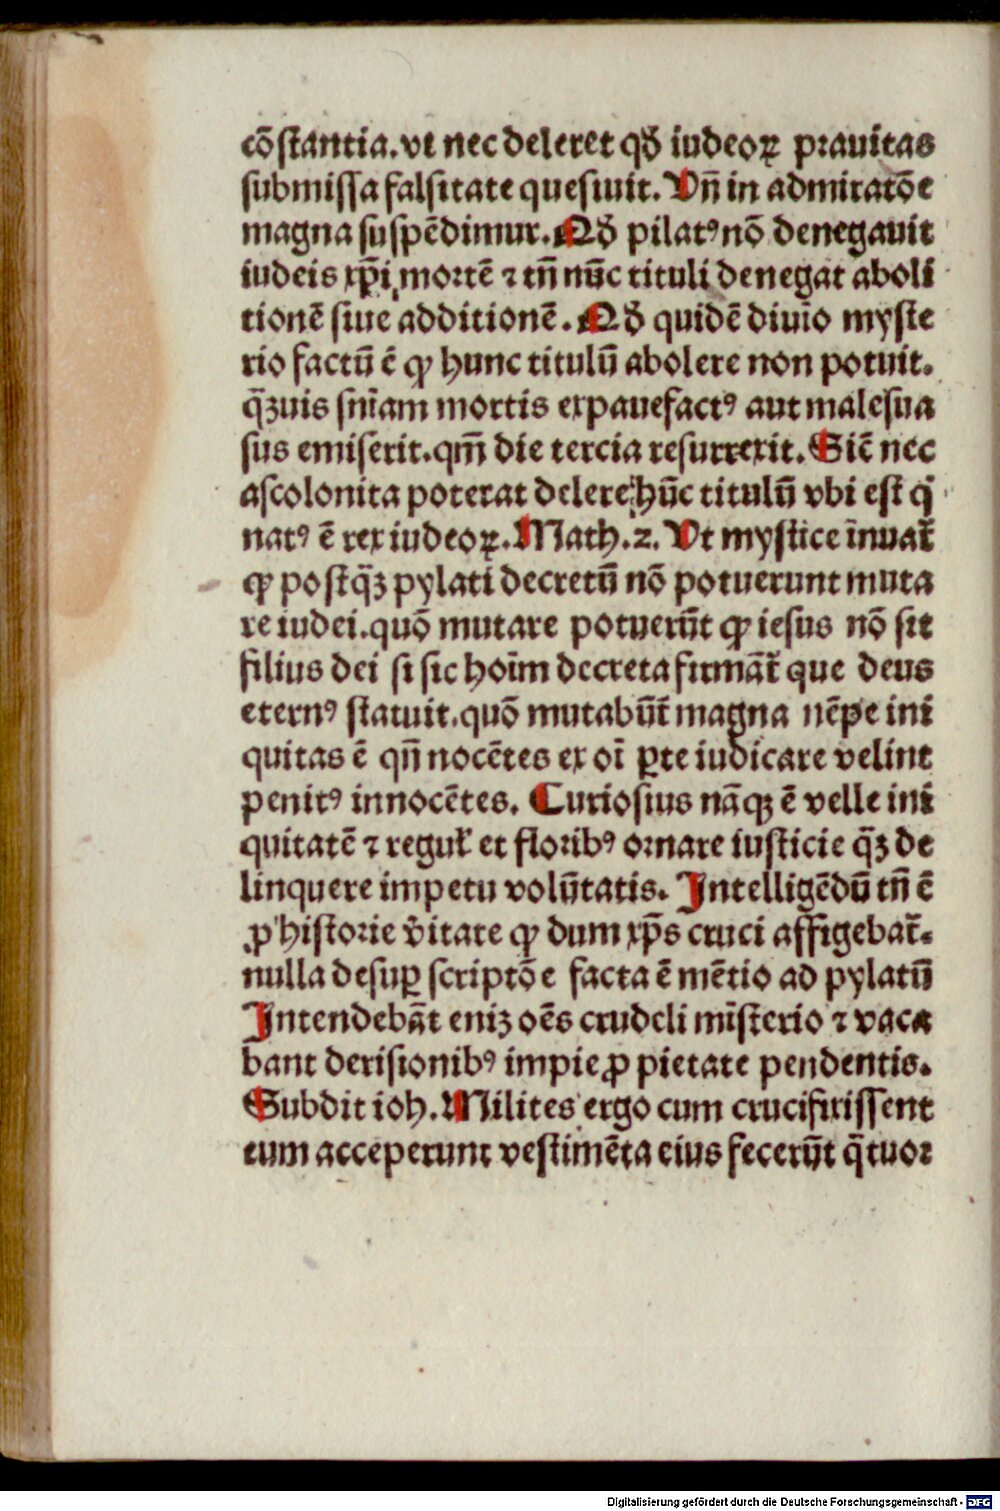 cōstantia.vt nec deleret qđ iudeoꝝ prauitas
submissa falsitate quesiuit. Vn̄ in admiratōe
magna suspēdimur. Qđ pilatꝰ nō denegauit
iudeis xp̄i mortē ⁊ tn̄ nūc tituli denegat aboli
tionē siue additionē. Qđ quidē diuīo myste
rio factū ē ꝙ hunc titulū abolere non potuit.
q̄ꝫuis sn̄iam mortis expauefactꝰ aut malesua
sus emiserit.qm̄ die tercia resurrexit. Sic̄ nec
ascolonita poterat delere hūc titulū vbi est q̇
natꝰ ē rex iudeoꝝ. Math.2. Vt mystice īnuat᷑
ꝙ postq̄ꝫ pylati decretū nō potuerunt muta
re iudei.quō mutare potuerūt ꝙ iesus nō sit
filius dei si sic hoīm decreta firmāt᷑ que deus
eternꝰ statuit.quō mutabūt᷑ magna nēpe ini
quitas ē qn̄ nocētes ex oī ꝑte iudicare velint
penitꝰ innocētes. Curiosius nāqꝫ ē velle ini
quitatē ⁊ regul᷑ et floribꝰ ornare iusticie q̄ꝫ de
linquere impetu volūtatis. Intelligēdū tn̄ ē
ꝓ historie v̓itate ꝙ dum xp̄s cruci affigebat᷑.
nulla desuꝑ scriptōe facta ē mētio ad pylatū
Intendebāt eniꝫ oēs crudeli mīsterio ⁊ vaca
bant derisionibꝰ impie ꝓ pietate pendentis.
Subdit ioh. Milites ergo cum crucifixissent
eum acceperunt vestimēta eius fecerūt q̄tuor
Digitalisierung gefördert durch die Deutsche Forschungsgemeinschaft - DFG